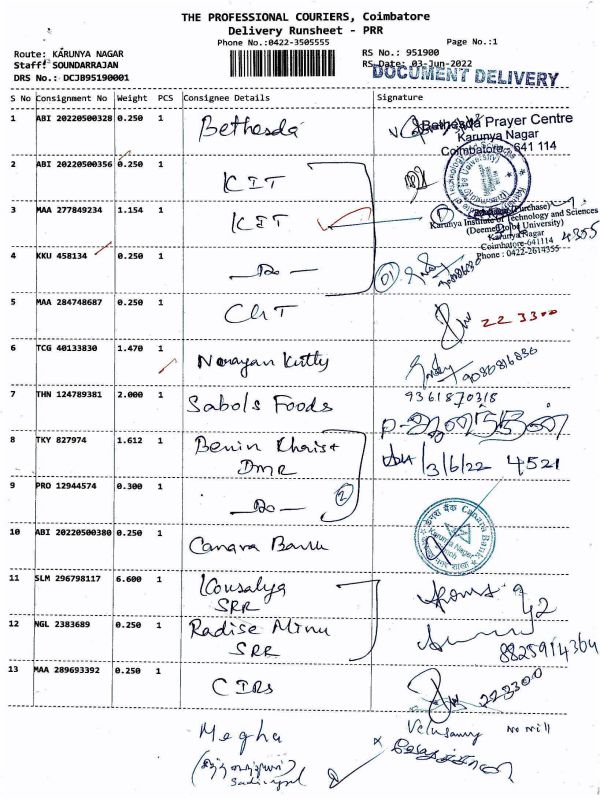 THE PROFESSIONAL COURIERS, Coimbatore
Delivery Runsheet - PRR
Phone No.:0422-3505555
Page No.:1
Route: KARUNYA NAGAR
RS No.: 951900
Staff: SOUNDARRAJAN
RS Date: 03-Jun-2022
DRS No.: DCJB95190001
DOCUMENT DELIVERY
S No Consignment No Weight PCS Consignee Details Signature
1 ABI 20220500328 0.250 1 Bethesda
Bethesda Prayer Centre
Karunya Nagar
Coimbatore - 641 114
2 ABI 20220500356 0.250 1 KIT
3 MAA 277849234 1.154 1 KIT
(Purchase)
Karunya Institute of Technology and Sciences
(Deemed to be University)
Karunya Nagar
Coimbatore-641114
Phone : 0422-2614355
4355
4 KKU 458134 0.250 1 - Do - 01
5 MAA 284748687 0.250 1 223300
6 TCG 40133830 1.470 1 Narayan Kutty
7 THN 124789381 2.000 1 Sabols Foods 9361870318
8 TKY 827974 1.612 1 Benin Khrist
DMR
3/6/22 4521
9 PRO 12944574 0.300 1 - Do - 2
10 ABI 20220500380 0.250 1 Canara Bank
Canara Bank
Karunya Nagar
11 SLM 296798117 6.600 1 Kousalya
SRR
12 NGL 2383689 0.250 1 Radise Minu
SRR
8825914364
13 MAA 289693392 0.250 1 CIRs 223300
Megha
Velusamy